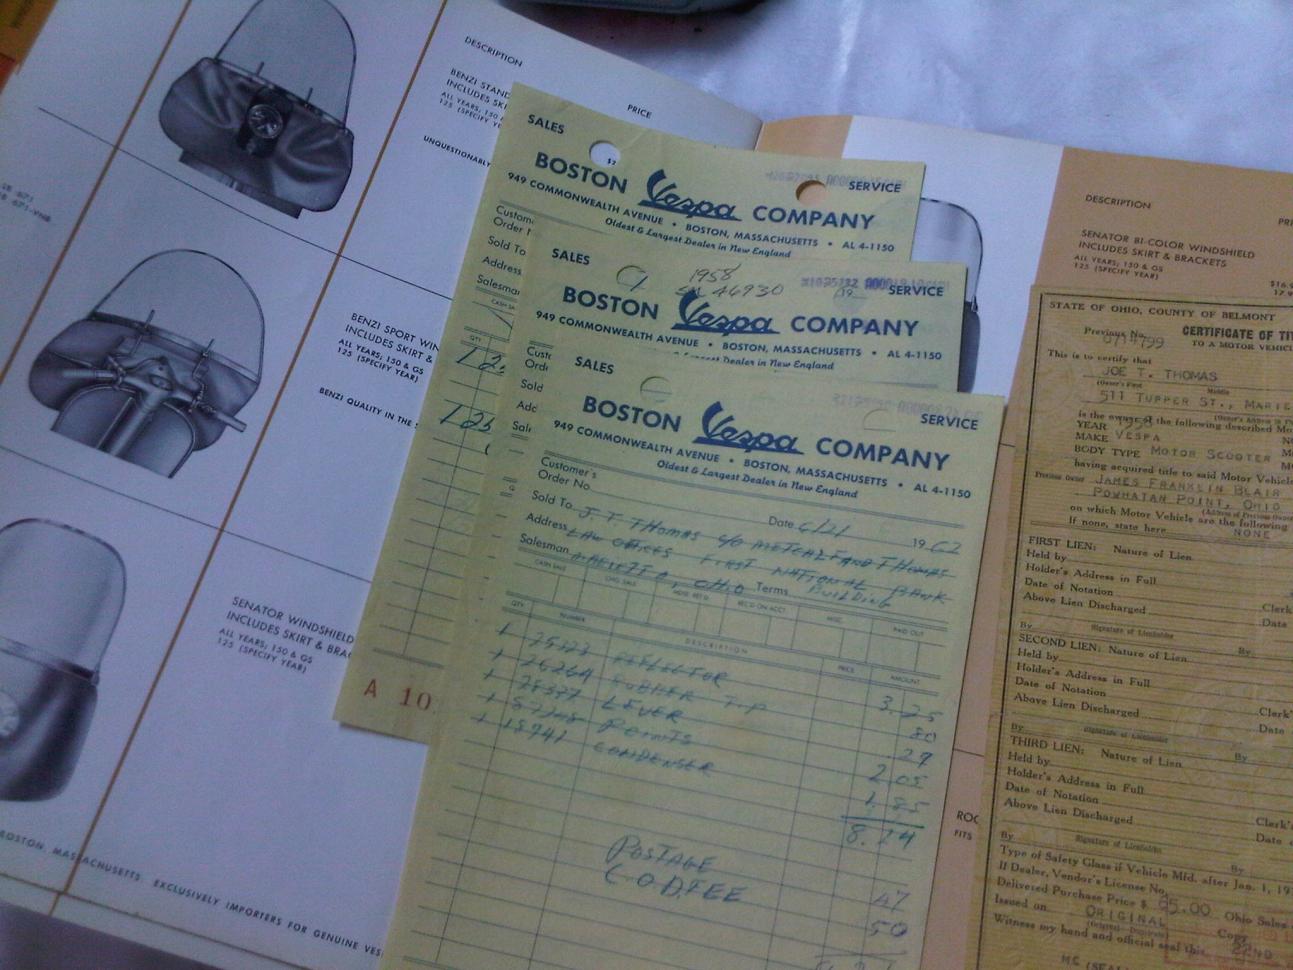 DESCRIPTION
PRICE
BENZI STAND
INCLUDES SKIRT
ALL YEARS; 150 &
125 (SPECIFY YE
UNQUESTIONABLY
BENZI SPORT WIN
INCLUDES SKIRT &
ALL YEARS; 150 & GS
125 (SPECIFY YEAR)
BENZI QUALITY IN THE
SENATOR WINDSHIELD
INCLUDES SKIRT & BRA
ALL YEARS; 150 & GS
125 (SPECIFY YEAR)
BOSTON, MASSACHUSETTS EXCLUSIVELY IMPORTERS FOR GENUINE VES
SALES
SERVICE
BOSTON Vespa COMPANY
949 COMMONWEALTH AVENUE • BOSTON, MASSACHUSETTS • AL 4-1150
Oldest & Largest Dealer in New England
Custom
Order N
Sold To
Address
Salesma
CASH SA
QTY
A 10
SALES
1958
46930
SERVICE
BOSTON Vespa COMPANY
949 COMMONWEALTH AVENUE • BOSTON, MASSACHUSETTS • AL 4-1150
Oldest & Largest Dealer in New England
SALES
SERVICE
BOSTON Vespa COMPANY
949 COMMONWEALTH AVENUE • BOSTON, MASSACHUSETTS • AL 4-1150
Oldest & Largest Dealer in New England
Customer's
Order No.
Date 6/21 1962
Sold To J. T. THOMAS c/o METCALF AND THOMAS
Address LAW OFFICES FIRST NATIONAL BANK
Salesman MARIETTA, OHIO Terms BUILDING
CASH SALE CHG. SALE MDSE. RET'D REC'D ON ACCT. MISC. PAID OUT
QTY. NUMBER DESCRIPTION PRICE AMOUNT
1 REFLECTOR 3.25
1 RUBBER 80
1 LEVER 29
1 POINTS 2 05
1 CONDENSER 1 85
8.24
POSTAGE 47
C.O.D. FEE 50
DESCRIPTION
SENATOR BI-COLOR WINDSHIELD
INCLUDES SKIRT & BRACKETS
ALL YEARS; 150 & GS
125 (SPECIFY YEAR)
STATE OF OHIO, COUNTY OF BELMONT
Previous No.
CERTIFICATE OF TIT
TO A MOTOR VEHIC
This is to certify that
JOE T. THOMAS
511 TUPPER ST., MARIE
is the owner of the following described Mo
YEAR 1958
MAKE VESPA
BODY TYPE MOTOR SCOOTER
having acquired title to said Motor Vehicle
Previous Owner JAMES FRANKLIN BLAIR
POWHATAN POINT, OHIO
on which Motor Vehicle are the following
If none, state here NONE
FIRST LIEN: Nature of Lien
Held by
Holder's Address in Full
Date of Notation Clerk
Above Lien Discharged Date
By Signature of Lienholder By
SECOND LIEN: Nature of Lien
Held by
Holder's Address in Full
Date of Notation
Above Lien Discharged Clerk's
Date
By Signature of Lienholder By
THIRD LIEN: Nature of Lien
Held by
Holder's Address in Full
Date of Notation
Above Lien Discharged Clerk's
Date o
By Signature of Lienholder By
Type of Safety Glass if Vehicle Mfd. after Jan. 1, 19
If Dealer, Vendor's License No.
Delivered Purchase Price $ 65.00 Ohio Sales
Issued on ORIGINAL Copy
Witness my hand and official seal this 22ND
ROO
FITS